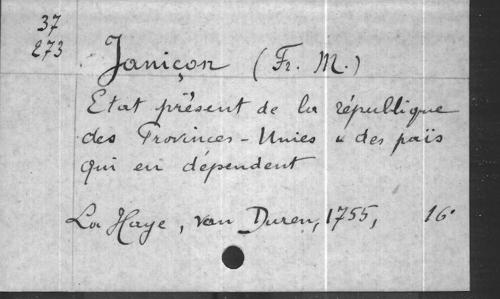 37
273
Janiçon (Fr. M.)
Etat présent de la république
des Provinces-Unies & des païs
qui en dépendent
La Haye, van Duren, 1755, 16°